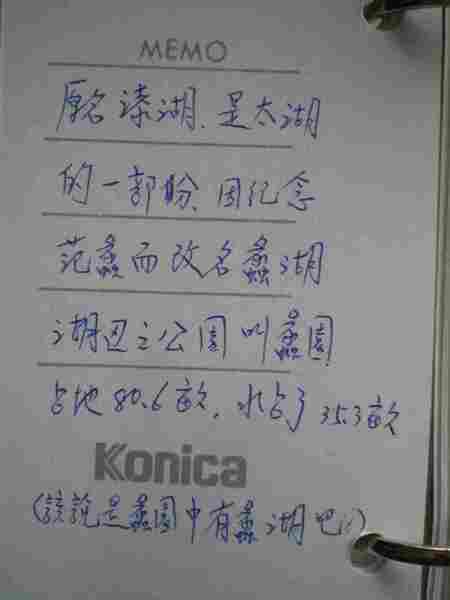 MEMO
原名漆湖、是太湖
的一部份、因纪念
范蠡而改名蠡湖
湖边之公園叫蠡園
占地80.6亩,水占了35.3亩
Konica
(該說是蠡園中有蠡湖吧!)